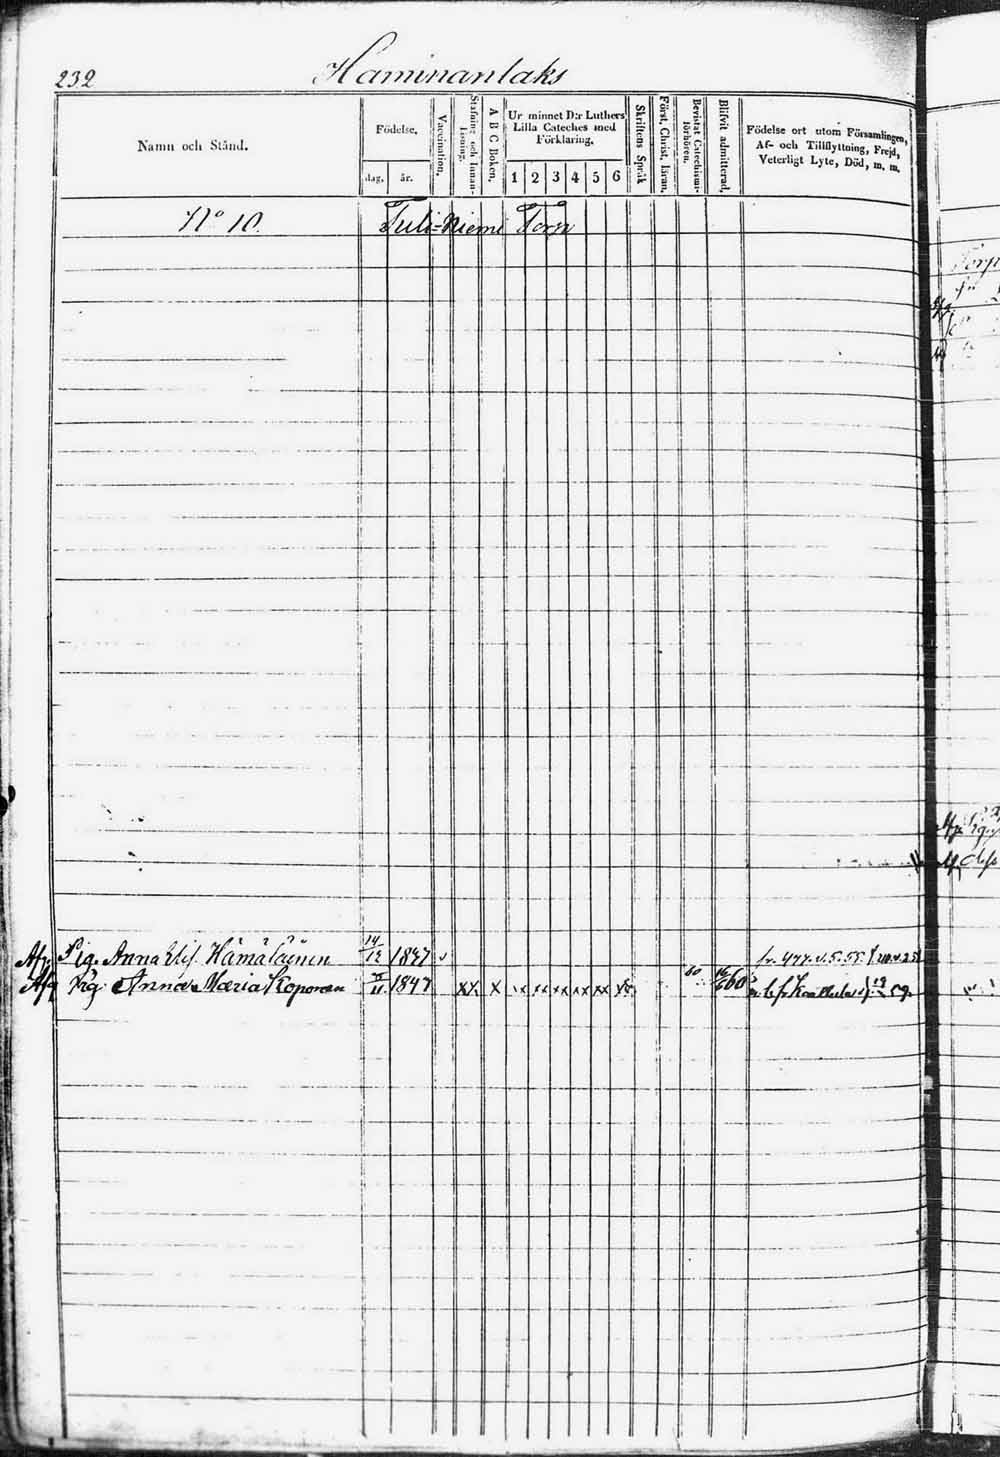 232 Haminanlaks
Namn och Stånd.
Födelse,
dag. år.
Vaccination.
Stafning och Innan-läsning.
A B C Boken.
Ur minnet D:r Luthers
Lilla Cateches med
Förklaring.
1 2 3 4 5 6
Skriftens Språk
Först. Christ. läran.
Bevistat Catechismi-förhören.
Blifvit admitterad.
Födelse ort utom Församlingen,
Af- och Tillflyttning, Frejd,
Veterligt Lyte, Död, m. m.
No 10 Tuli-Niemi Torp
Afg. Pig. Anna Elis. Hämäläinen 14/12 1847
Afg Pig Anna Maria Koponen 11 1847 xx x xx xx xx xx xx 60 60